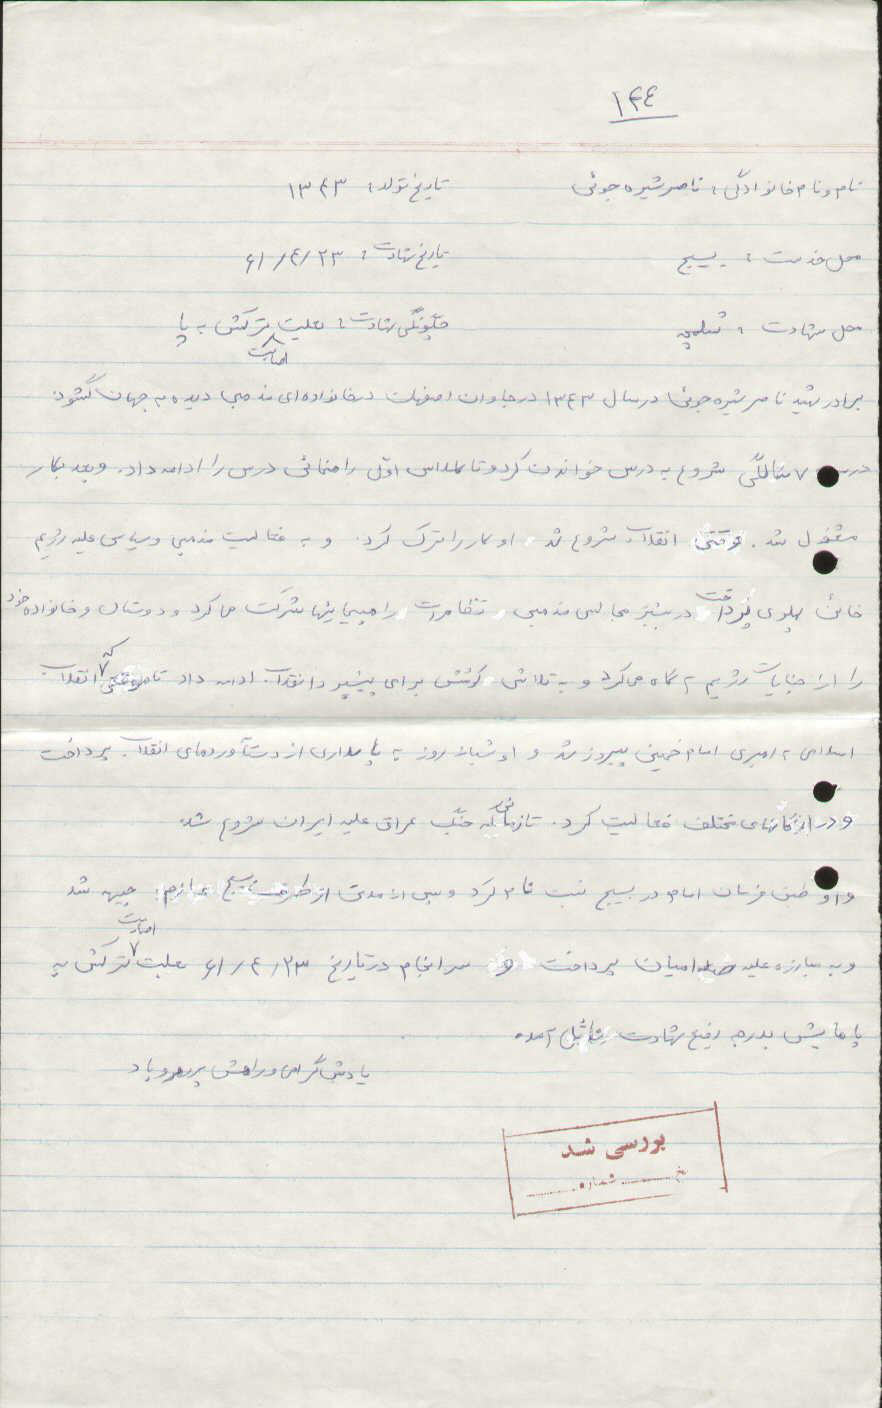 ۱۴۴
نام و نام خانوادگی: ناصر شیره جوئی تاریخ تولد: ۱۳۴۳
محل خدمت: بسیج تاریخ شهادت: ۶۱/۴/۲۳
محل شهادت: شلمچه چگونگی شهادت: بعلت اصابت ترکش به پا
برادر شهید ناصر شیره جوئی در سال ۱۳۴۳ در جاوان اصفهان در خانواده‌ای مذهبی دیده به جهان گشود
در سن ۷ سالگی شروع به درس خواندن کرد و تا کلاس اول راهنمائی درس را ادامه داد. و بعد بکار
مشغول شد. وقتی انقلاب شروع شد او کار را ترک کرد. و به فعالیت مذهبی و سیاسی علیه رژیم
خائن پهلوی پرداخت در بیشتر مجالس مذهبی و تظاهرات و راهپیمائیها شرکت می کرد و دوستان و خانواده خود
را از جنایات رژیم آگاه می کرد و به تلاش و کوشش برای پیشبرد انقلاب ادامه داد تا وقتی که انقلاب
اسلامی به رهبری امام خمینی پیروز شد و او شبانه روز به پاسداری از دستآوردهای انقلاب پرداخت
و در ارگانهای مختلف فعالیت کرد. تا زمانی که جنگ عراق علیه ایران شروع شد
و او طبق فرمان امام در بسیج ثبت نام کرد و پس از مدتی از طرف بسیج عازم جبهه شد
و به مبارزه علیه صدامیان پرداخت و سرانجام در تاریخ ۶۱/۴/۲۳ بعلت اصابت ترکش به
پاهایش بدرجه رفیع شهادت نائل آمد.
یادش گرامی و راهش پر رهرو باد
بررسی شد
شماره